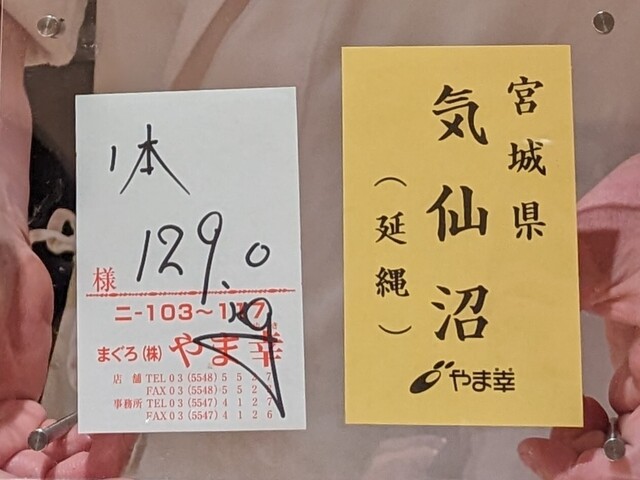 1本
129.0
kg
様
ニ-103~117
まぐろ(株)やま幸
店舗 TEL 03 (5548) 5 5 2 7
FAX 03 (5548) 5 5 2
事務所 TEL 03 (5547) 4 1 2 7
FAX 03 (5547) 4 1 2 6
宮城県
気仙沼
(延縄)
やま幸